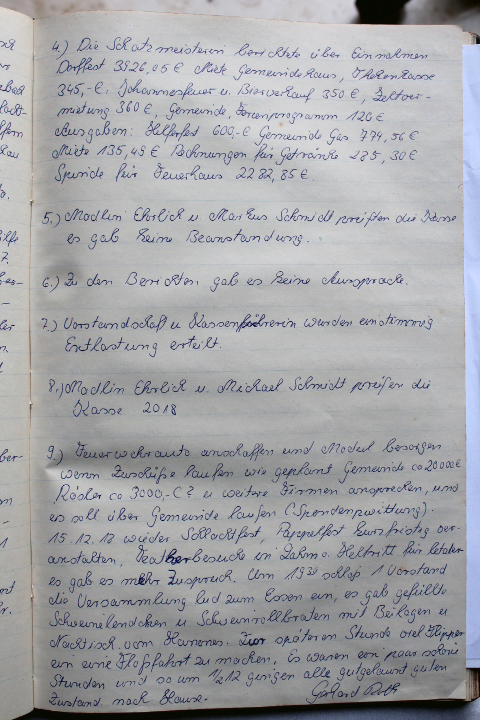 4.) Die Schatzmeisterin berichtete über Einnahmen
Dorffest 3526,05 € Miete Gemeindehaus, Thekenkasse
345,-€, Johannesfeuer u. Bierverkauf 350 €, Zeltver-
mietung 360 €, Gemeinde, Ferienprogramm 126 €
Ausgaben: Helferfest 600,-€ Gemeinde Gas 774,56 €
Miete 135,45 € Rechnungen für Getränke 285,30 €
Spende für Feuerhaus 2282,85 €.
5.) Madlin Ehrlich u Markus Schmidt prüften die Kasse
es gab keine Beanstandung.
6.) Zu den Berichten gab es keine Aussprache.
7.) Vorstandschaft u Kassenführerin wurden einstimmig
Entlastung erteilt.
8.) Madlin Ehrlich u. Michael Schmidt prüfen die
Kasse 2018
9.) Feuerwehrauto anschaffen und Modul besorgen
wenn Zuschüße laufen wie geplant Gemeinde ca 20000€
Rösler ca 3000,-€? u weitere Firmen ansprechen, und
es soll über Gemeinde laufen (Spendenquittung).
15.12.12 wieder Schlachtfest, Pappelfest kurzfristig ver-
anstalten, Theaterbesuche in Lahm o. Heltritt für letzter
es gab es mehr Zuspruch. Um 19³⁰ schloß 1 Vorstand
die Versammlung lud zum Essen ein, es gab gefüllte
Schweinelendchen u Schweinerollbraten mit Beilagen u
Nachtisch vom Hannes. Zur späteren Stunde rief
ein eine Floßfahrt zu machen. Es waren ein paar schöne
Stunden und so um 1/2 12 gingen alle gutgelaunt guten
Zustand nach Hause. Gerhard